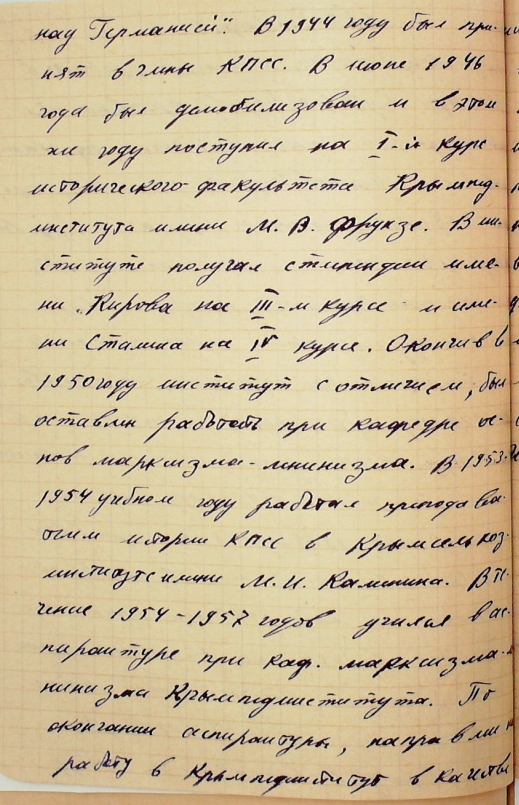 над Германией". В 1944 году был при-
нят в члены КПСС. В июне 1946
года был демобилизован и в этом
же году поступил на I-й курс
исторического факультета Крымпед-
института имени М. В. Фрунзе. В ин-
ституте получал стипендии име-
ни Кирова на III-м курсе и име-
ни Сталина на IV курсе. Окончив в
1950 году институт с отличием, был
оставлен работать при кафедре ос-
нов марксизма-ленинизма. В 1953-
1954 учебном году работал преподава-
телем истории КПСС в Крымсельхоз-
институте имени М. И. Калинина. В те-
чение 1954-1957 годов учился в ас-
пирантуре при каф. марксизма-ле-
нинизма Крымпединститута. По
окончании аспирантуры, направлен на
работу в Крымпединститут в качестве